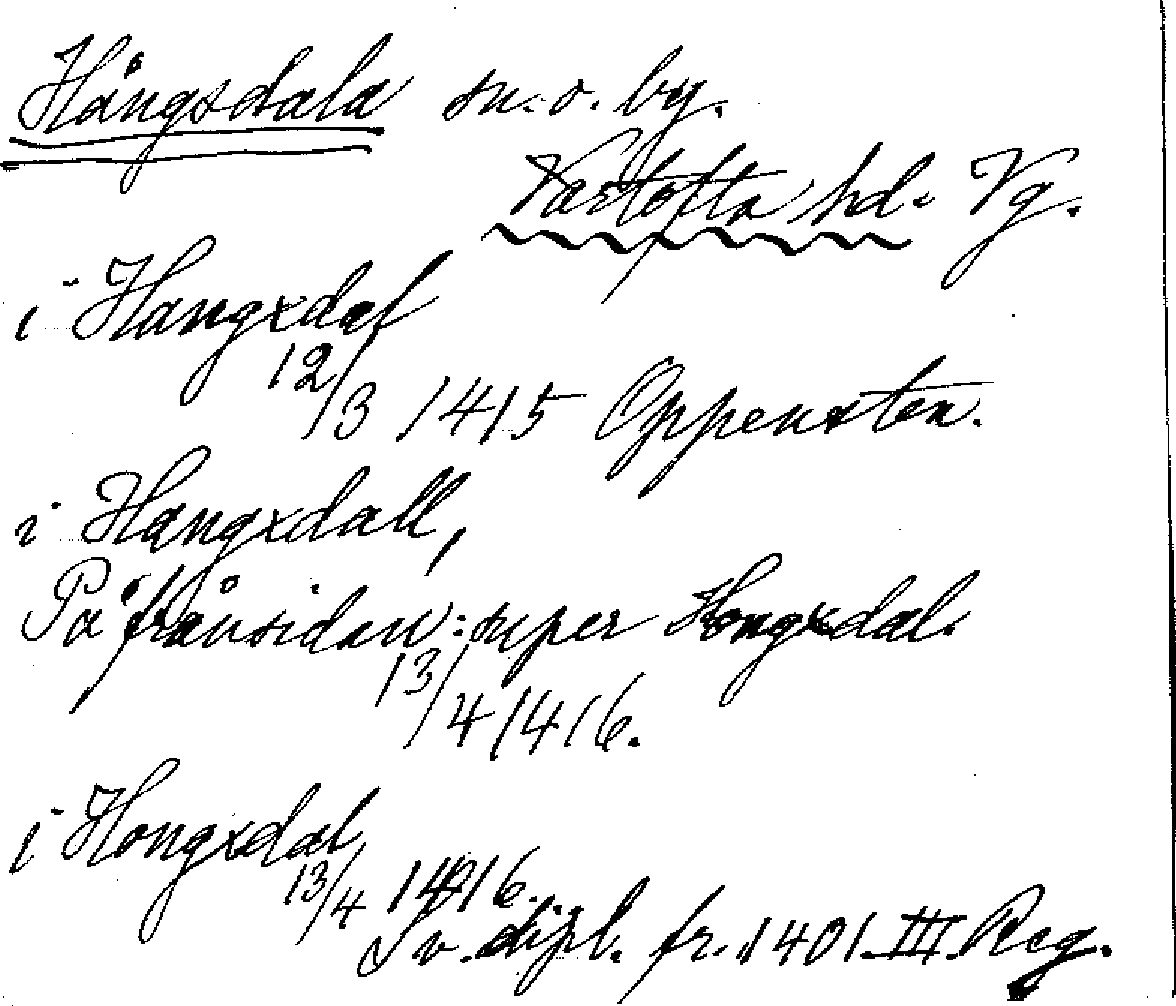 Hångsdala sn. o. by.
Vartofta hd. Vg.
i Hangxdal
12/3 1415 Oppensten.
i Hangxdall,
På frånsidan: super Hongxdal.
13/4 1416.
i Hongxdal
13/4 1416.
Sv. dipl. fr. 1401. III. Reg.